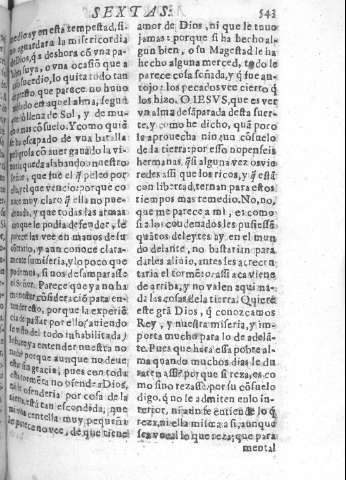 SEXTAS. 543
medio ay en esta tempestad, si-
no aguardar a la misericordia
de Dios, q̃ a deshora cõ vna pa-
labra suya, o vna ocasiõ que a
caso sucedio, lo quita todo tan
presto, que parece no huuo
nublado en aquel alma, segun
queda llena de Sol, y de mu-
cho mas cõsuelo. Y como quiẽ
se ha escapado de vna batalla
peligrosa cõ auer ganado la vi-
toria, queda alabando a nuestro
Señor, que fue el q̃ peleo por
que vencio: porque co-
noce muy claro q̃ ella no pue-
de nada, y que todas las armas
con que se podia defender, le
parece las vee en manos de su
contrario, y assi conoce clara-
mente su miseria, y lo poco que
podemos, si nos desamparasse
el Señor. Parece que ya no ha
menester cõsideraciõ para en-
tender esto, porque la experiẽ-
cia de passar por ello, auiendo
se visto del todo inhabilitada,
le haze ya entender nuestra no
nada
porque aunque no deue
estar sin gracia, pues con toda
esta tormẽta no ofende a Dios,
ni le ofenderia por cosa de la
tierra, està tan escondida, que
ni aun centella muy pequeña
le parece no vee, de que tiene
amor de Dios, ni que le tuuo
jamas: porque si ha hecho al-
gun bien, o su Magestad le ha
hecho alguna merced, todo le
parece cosa soñada, y q̃ fue an-
tojo: los pecados vee cierto q̃
los hizo. O IESVS, que es ver
vn alma desãparada desta suer-
te, y como he dicho, quã poco
le aprouecha ninguu cõsuelo
de la tierra: por esso no penseis
hermanas, q̃ si alguna vez os vie-
redes assi que los ricos, y q̃ estã
con libertad, ternan para estos
tiempos mas remedio. No, no,
que me parece a mi, es como
si a los condenados les pusiessẽ
quãtos deleytes ay en el mun
do delante, no bastarian para
darles aliuio, antes les acrecen-
taria el tormẽto: assi aca viene
de arriba, y no valen aqui na-
da las cosas de la tierra. Quiere
este grã Dios, q̃ conozcamos
Rey, y nuestra miseria, y im-
porta mucho para lo de adelã-
te. Pues que harà essa pobre al-
ma quando muchos dias le du
rare assi? porque si reza, es co-
mo sino rezasse, por su cõsuelo
digo, q̃ no se admiten en lo in-
terior, ni aun se entiẽde lo q̃
reza, ni ella misma a si, aunque
sea vocal lo que reza; que para
mental